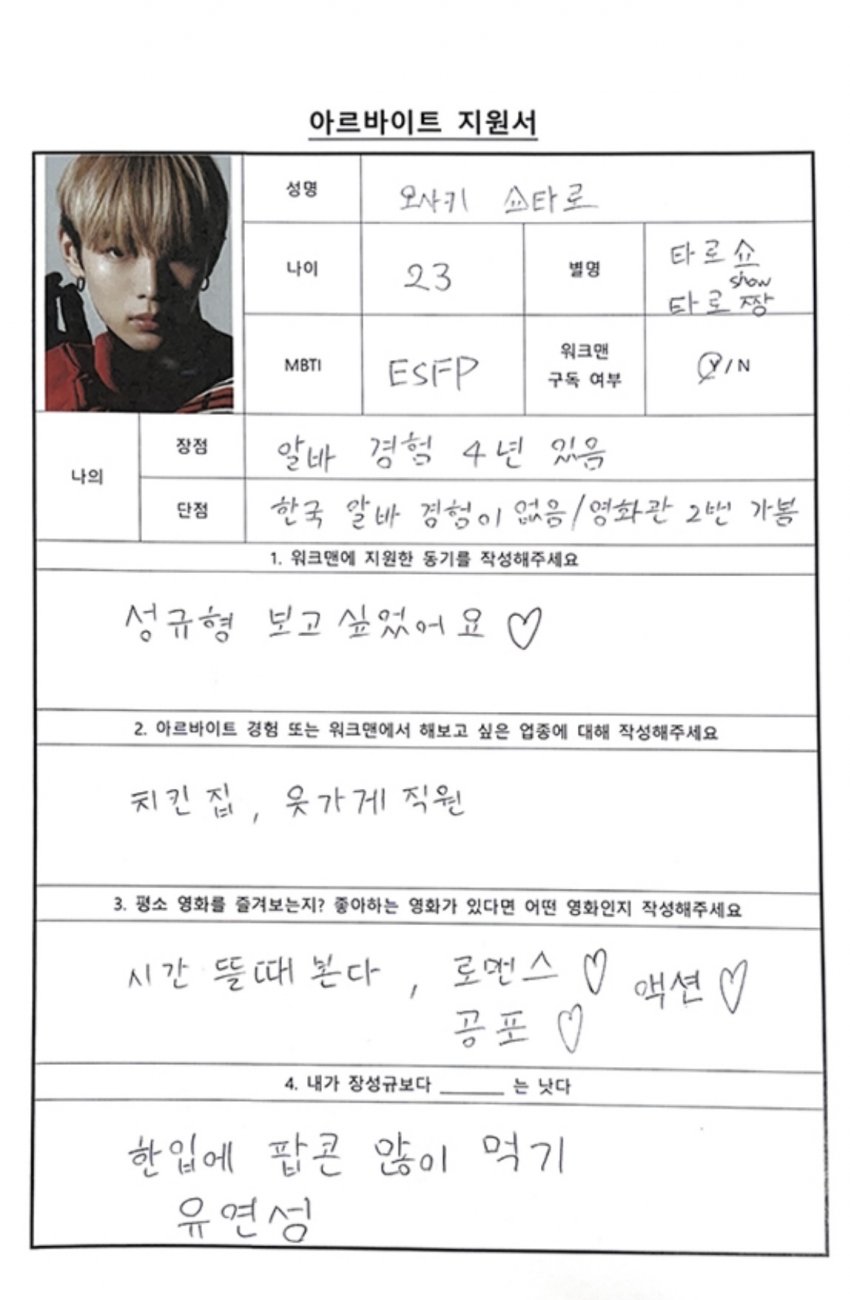 아르바이트 지원서
성명 오사키 쇼타로
나이 23 별명 타로쇼
show
타로짱
MBTI ESFP 워크맨 구독 여부 Y/N
나의 장점 알바 경험 4년 있음
단점 한국 알바 경험이 없음/영화관 2번 가봄
1. 워크맨에 지원한 동기를 작성해주세요
성규형 보고싶었어요 ♡
2. 아르바이트 경험 또는 워크맨에서 해보고 싶은 업종에 대해 작성해주세요
치킨집, 옷가게 직원
3. 평소 영화를 즐겨보는지? 좋아하는 영화가 있다면 어떤 영화인지 작성해주세요
시간 뜰때 본다, 로멘스 ♡ 액션 ♡
공포 ♡
4. 내가 장성규보다 ______ 는 낫다
한입에 팝콘 많이 먹기
유연성